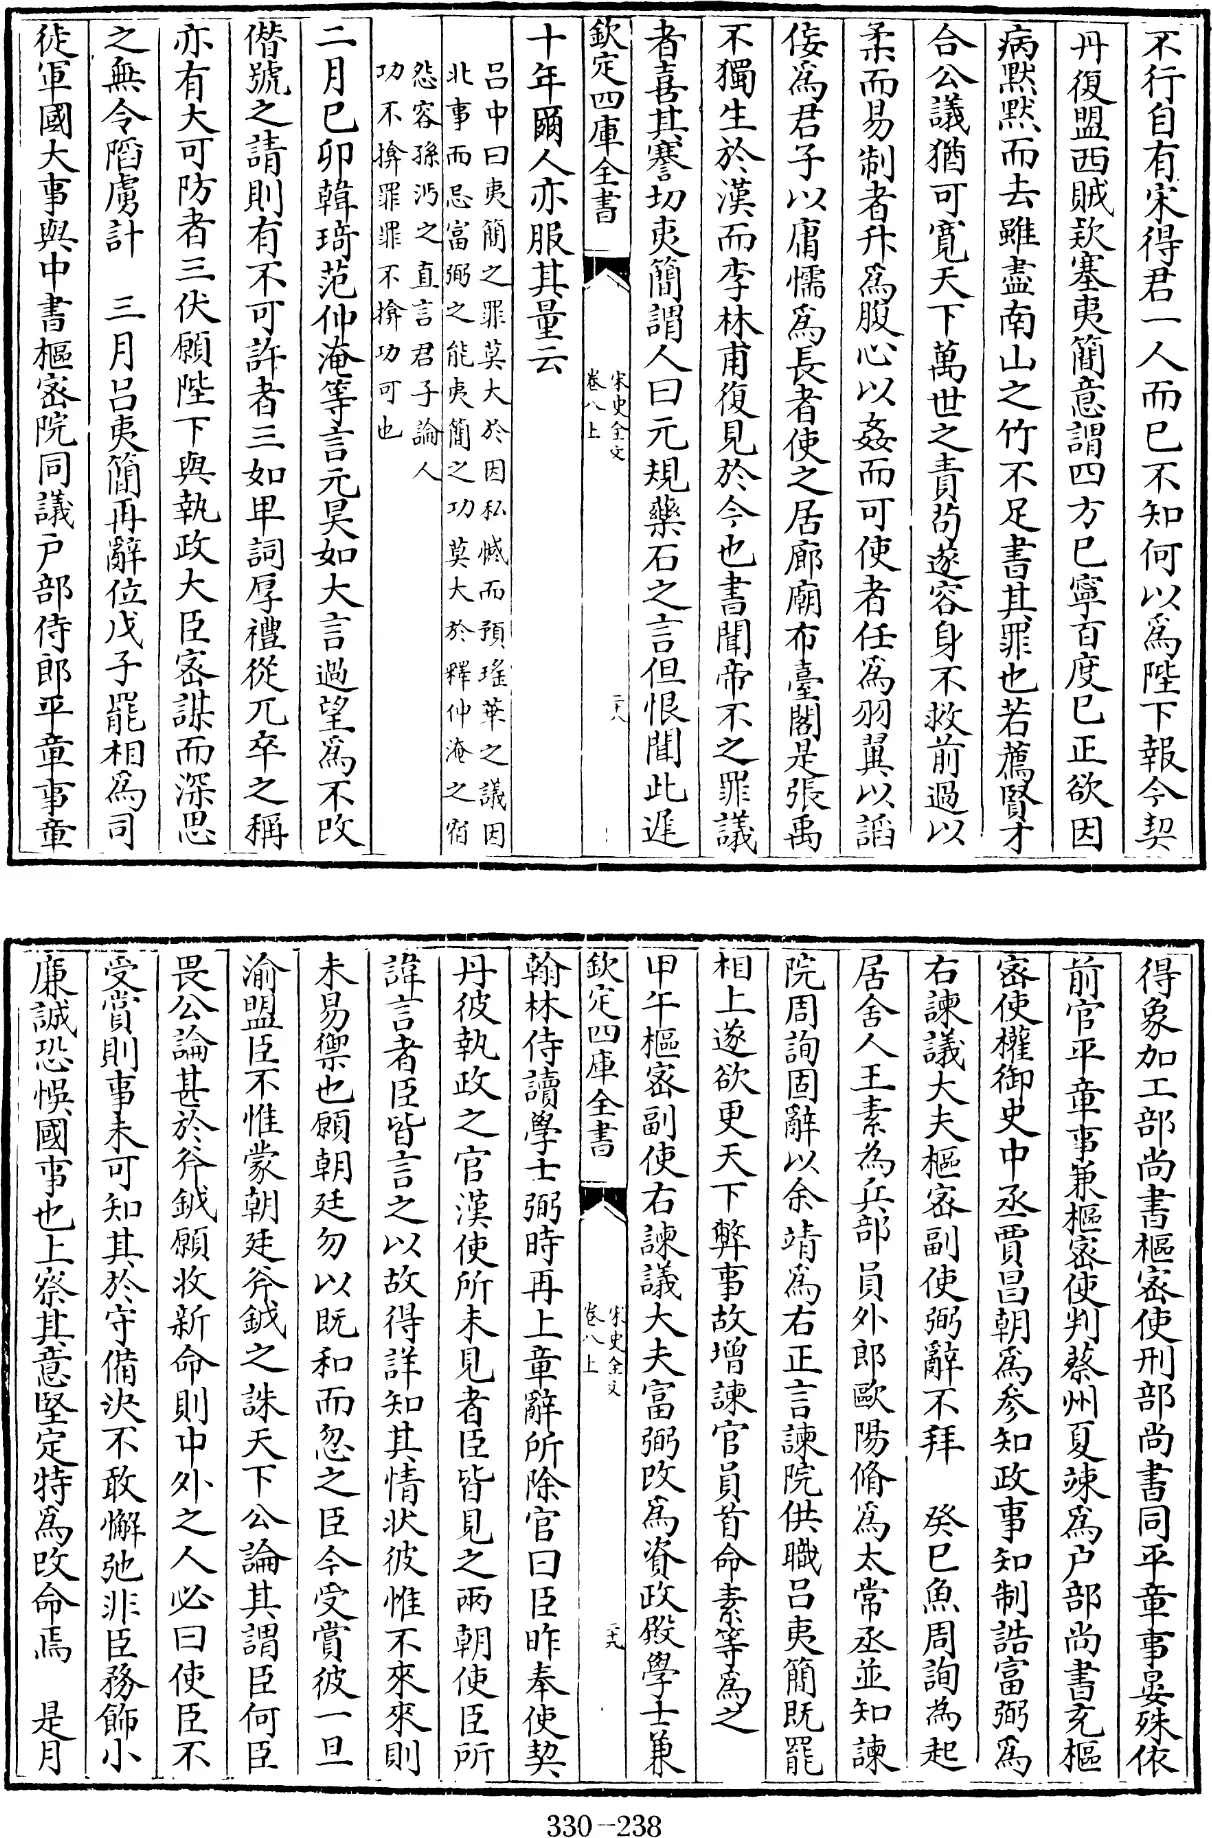 不行自有宋得君一人而已不知何以爲陛下報今契
丹復盟西賊欵塞夷簡意謂四方已寧百度已正欲因
病黙黙而去雖盡南山之竹不足書其罪也若薦賢才
合公議猶可寛天下萬世之責苟遂容身不救前過以
柔而易制者升爲腹心以姦而可使者任爲羽翼以謟
佞爲君子以庸懦爲長者使之居廊廟布臺閣是張禹
不獨生於漢而李林甫復見於今也書聞帝不之罪議
者喜其謇切夷簡謂人曰元規藥石之言但恨聞此遲
欽定四庫全書
宋史全文
卷八上
二十八
十年爾人亦服其量云
吕中曰夷簡之罪莫大於因私憾而預瑤華之議因
北事而忌富弼之能夷簡之功莫大於釋仲淹之宿
怨容孫沔之直言君子論人
功不揜罪罪不揜功可也
二月已卯韓琦范仲淹等言元昊如大言過望爲不改
僣號之請則有不可許者三如卑詞厚禮從兀卒之稱
亦有大可防者三伏願陛下與執政大臣宻謀而深思
之無令䧟虜計　三月吕夷簡再辭位戊子罷相爲司
徒軍國大事與中書樞宻院同議户部侍郎平章事章
得象加工部尚書樞宻使刑部尚書同平章事晏殊依
前官平章事兼樞宻使判蔡州夏竦爲户部尚書充樞
宻使權御史中丞賈昌朝爲參知政事知制誥富弼爲
右諫議大夫樞宻副使弼辭不拜　癸巳魚周詢為起
居舍人王素為兵部員外郎歐陽脩爲太常丞並知諫
院周詢固辭以余靖爲右正言諫院供職吕夷簡既罷
相上遂欲更天下弊事故増諫官員首命素等爲之
甲午樞宻副使右諫議大夫富弼改爲資政殿學士兼
欽定四庫全書
宋史全文
卷八上
二十九
翰林侍讀學士弼時再上章辭所除官曰臣昨奉使契
丹彼執政之官漢使所未見者臣皆見之兩朝使臣所
諱言者臣皆言之以故得詳知其情狀彼惟不來來則
未易禦也願朝廷勿以既和而忽之臣今受賞彼一旦
渝盟臣不惟蒙朝廷斧鉞之誅天下公論其謂臣何臣
畏公論甚於斧鉞願收新命則中外之人必曰使臣不
受賞則事未可知其於守備決不敢懈弛非臣務飾小
廉誠恐悞國事也上察其意堅定特爲改命焉　是月
330-238